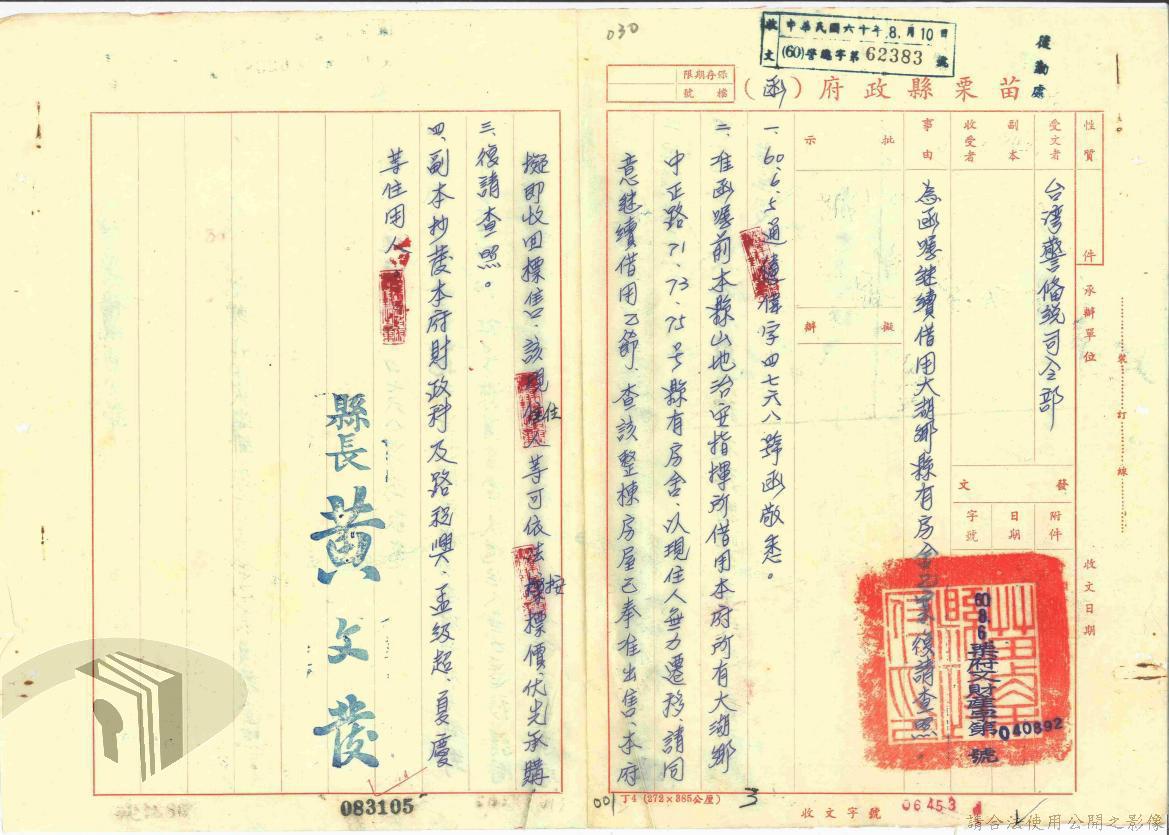 030
收文 中華民國六十年8月10日
(60)晉總字第62383號
後勤處
保存期限
檔號
苗栗縣政府（函）
性質
件
受文者 台湾警备總司令部
副本
收受者
事由 為函囑继續借用大湖鄉縣有房舍乙案復請查照。
批示
擬辦
承辦單位
發文
附件
日期 60.8.6
字號 栗府文財產字第040892號
收文日期
裝訂線
一、60.6.5通
字四七六八號函敬悉。
二、准函囑前本縣山地治安指揮所借用本府所有大湖鄉
中正路71.73.75号縣有房舍、以現住人無力遷移、請同
意继續借用乙節、查該整棟房屋已奉准出售、本府
擬即收回標售、該現住人等可依
標價、优先承購。
三、復請查照。
四、副本抄發本府財政科及路
興、孟級超、夏慶
等住用人。
縣長 黃文發
083105
001
丁4 (272×385公厘)
3
收文字號
06453
請合法使用公開之影像